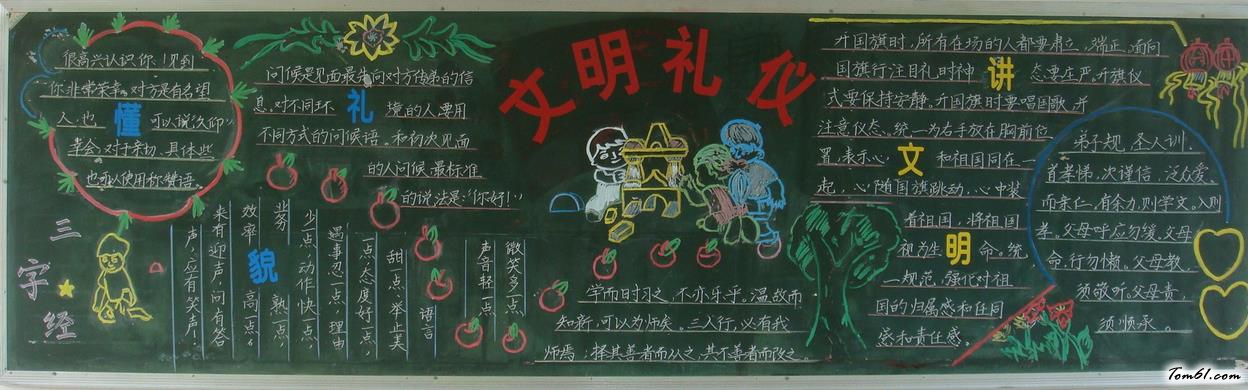 很高兴认识你、!见到
你非常荣幸。对方是有名望
人,也 懂 可以说"久仰"
幸会。对于亲切、具体些
也可以使用称赞语。
三
字
经
问候是见面最先向对方传递的信
息。对不同环 礼 境的人要用
不同方式的问候语。和初次见面
的人问候,最标准
的说法是:"你好!"
微笑多一点,
声音轻一点
语言
甜一点,举止美
一点,态度好一点,
遇事忍一点,理由
少一点,动作快一点,
业务 熟一点,
效率 貌 高一点。
来有迎声,问有答
声,应有笑声,
文明礼仪
学而时习之,不亦乐乎。温故而
知新,可以为师矣。三人行,必有我
师焉:择其善者而从之,其不善者而改之。
升国旗时,所有在场的人都要肃立,端正,面向
国旗行注目礼时神 讲 态要庄严。升旗仪
式要保持安静。升国旗时要唱国歌,并
注意仪态。统一为右手放在胸前位
置,表示心 文 和祖国同在一
起,心随国旗跳动,心中装
着祖国,将祖国
视为生 明 命。统
一规范,强化对祖
国的归属感和任同
感和责任感。
弟子规,圣人训,
首孝悌,次谨信,泛众爱,
而亲仁,有余力,则学文。入则
孝,父母呼应勿缓,父母
命,行勿懒。父母教,
须敬听。父母责,
须顺承。
Tom61.com